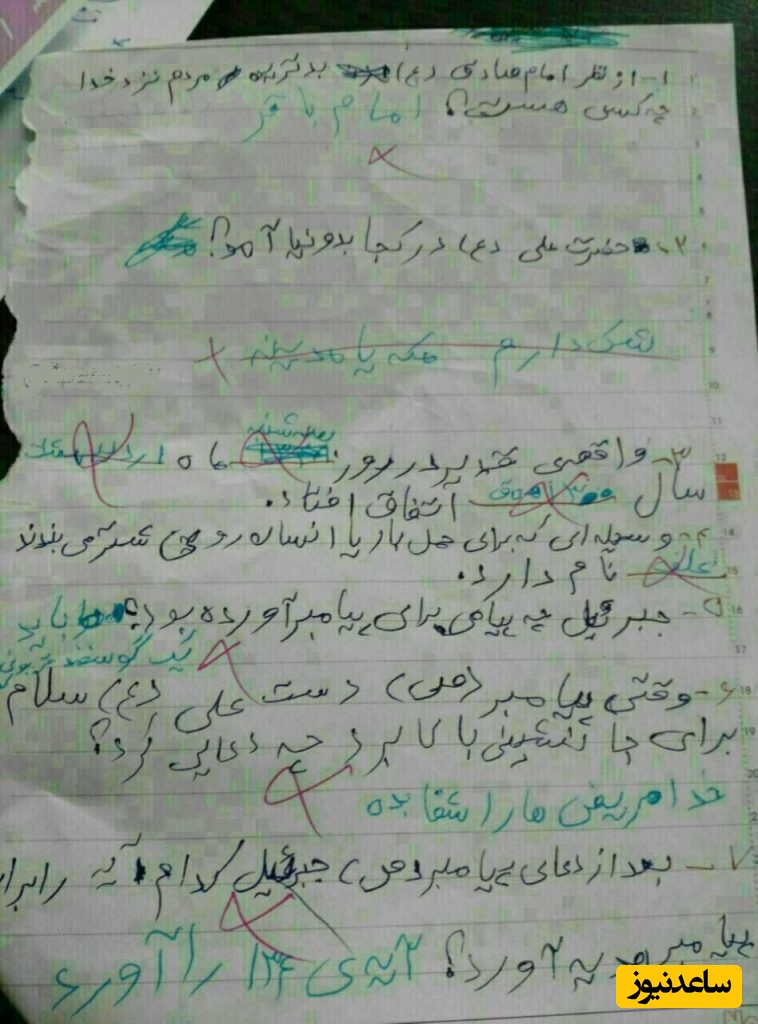 ۱- از نظر امام صادق (ع) بدترین مردم نزد خدا
چه کسی هست؟ امام باقر
۲- حضرت علی (ع) در کجا بدونیا آمد؟
شک دارم مکه یا مدینه
۳- واقعهی غدیر در روز سه شنبه ماه
سال اتفاق افتاد.
۴- وسیله ای که برای حمل بار یا انسان روی شتر می بندند
نام دارد.
۵- جبرئیل چه پیامی برای پیامبر آورده بود؟ باید
یک گوسفند قربونی
۶- وقتی پیامبر (ص) دست علی (ع) سلام
برای جانشینی بالا برد چه دعایی کرد؟
خدا مریض ها را شفا بده
۷- بعد از دعای پیامبر (ص) جبرئیل کدام آیه را برای
پیامبر هدیه آورد؟ آیه ی ۱۳۴ را آورد
ساعدنیوز